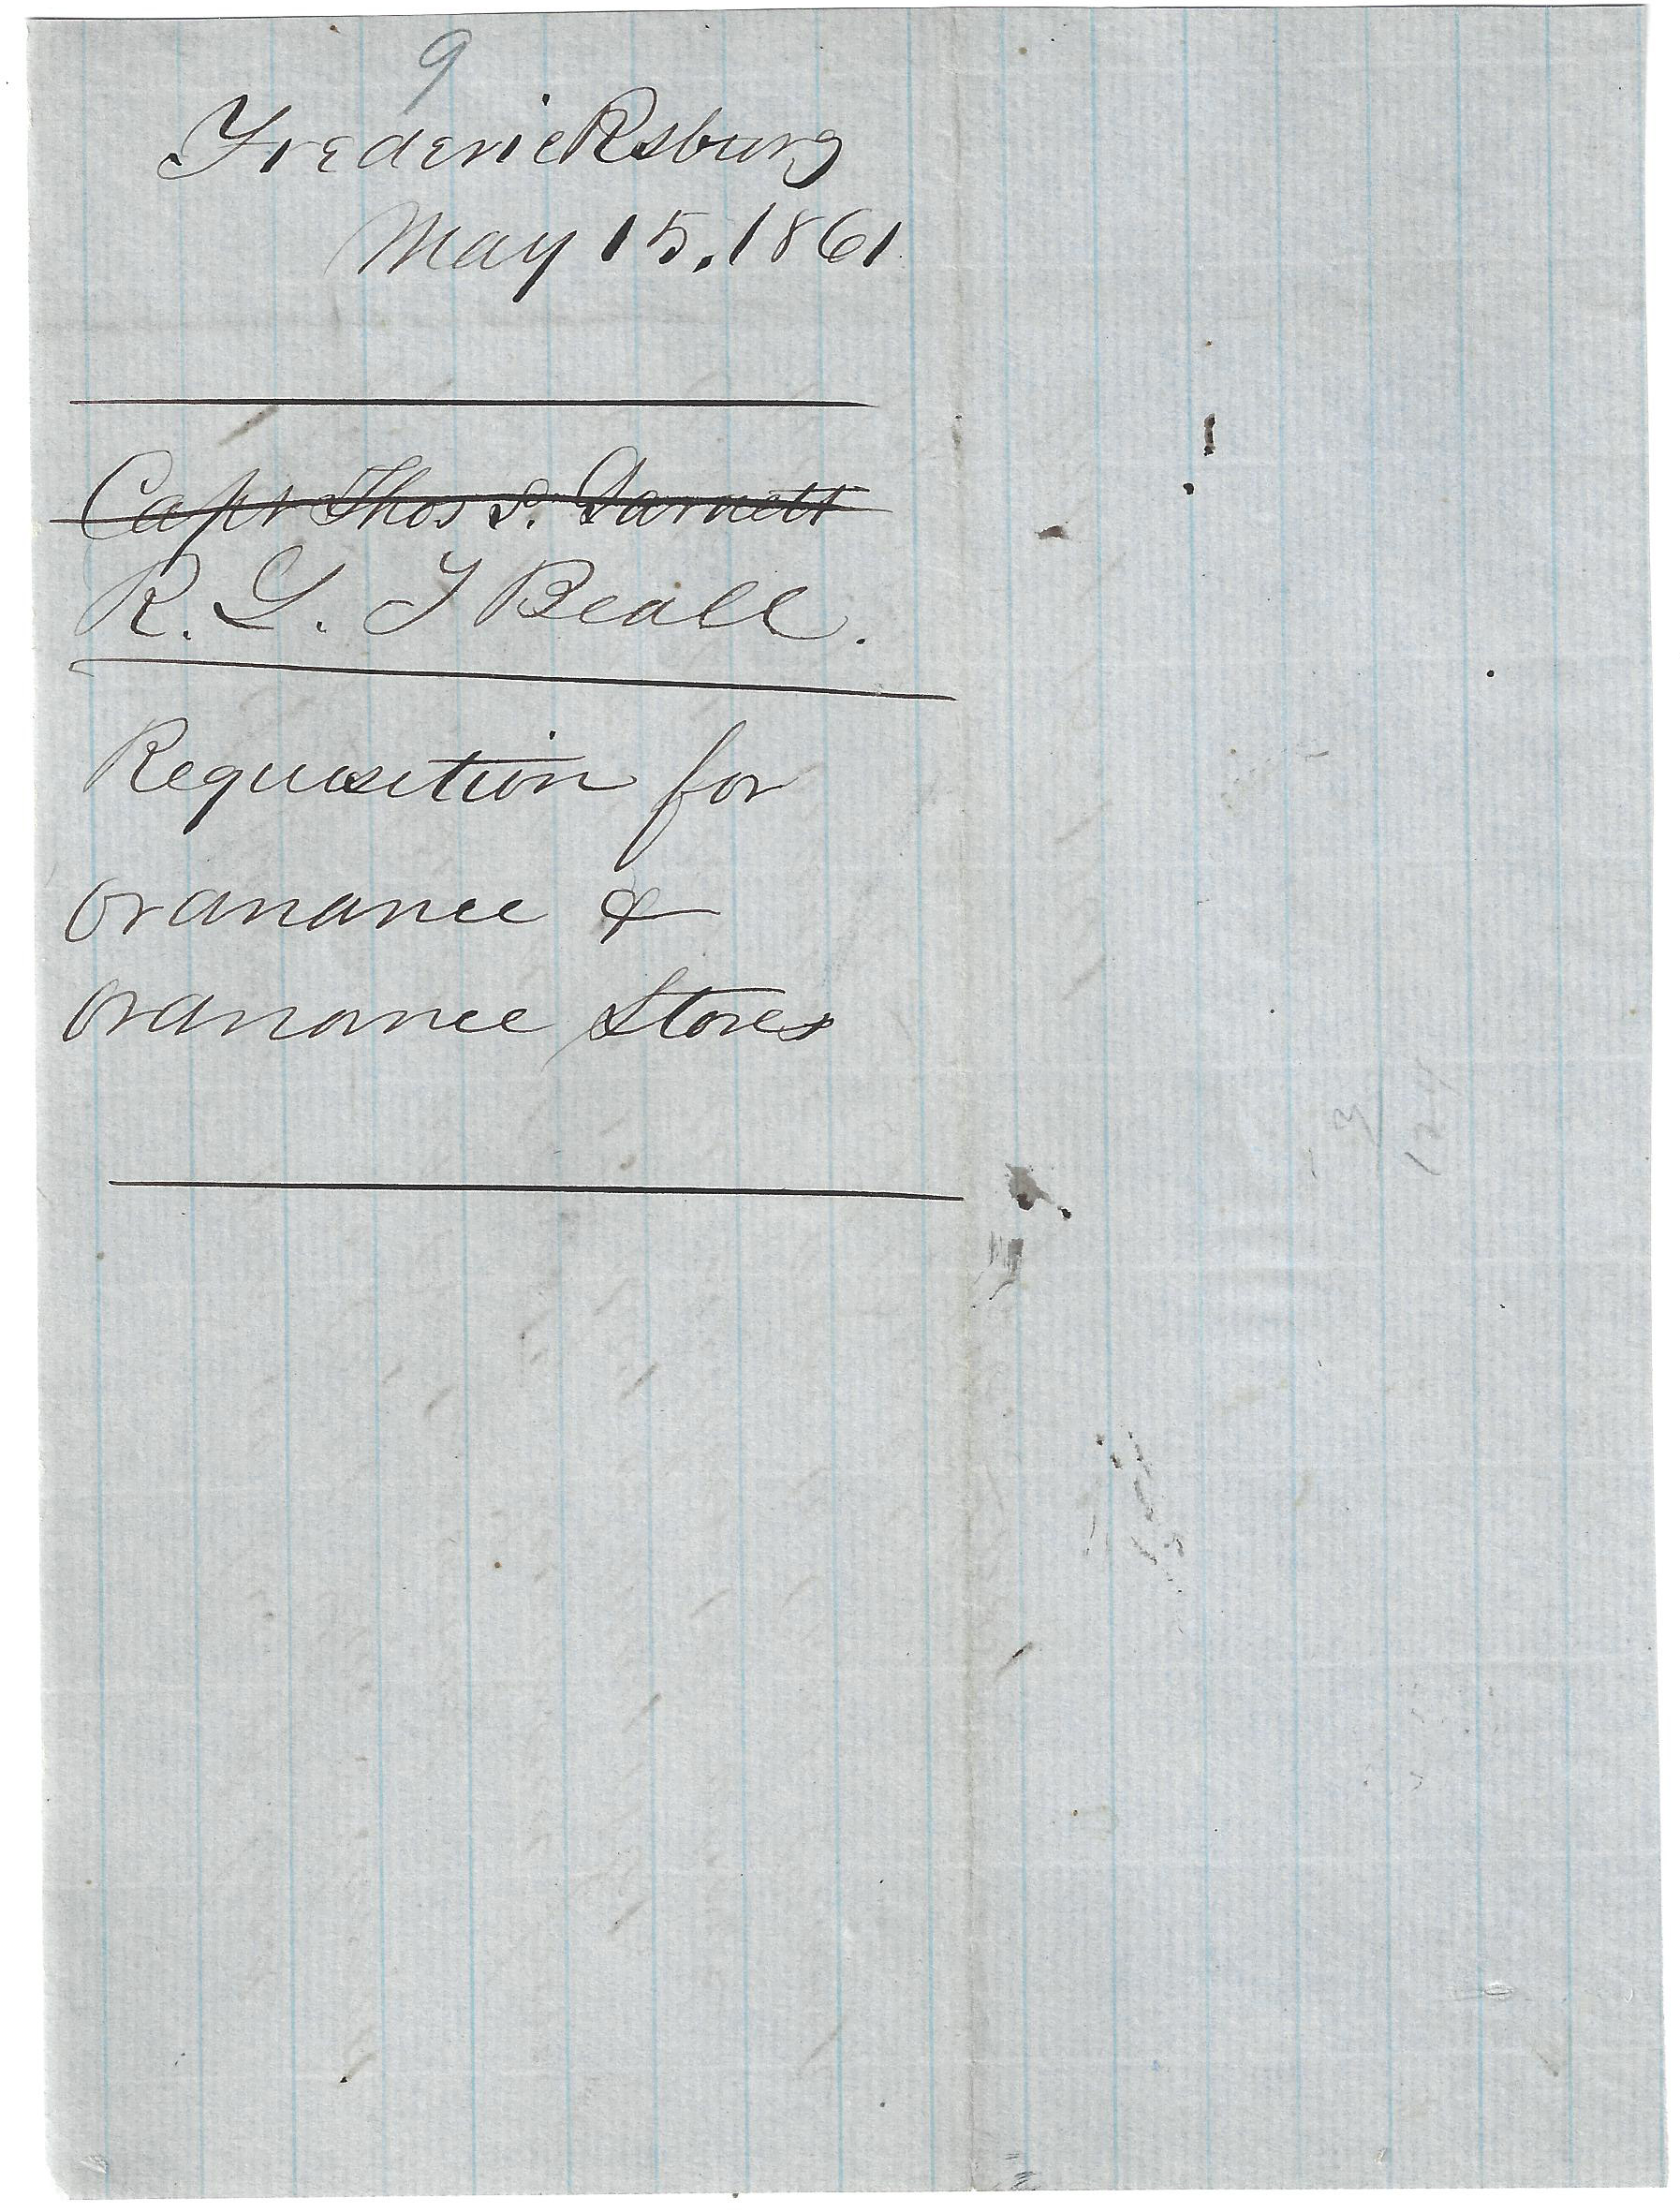 9
Fredericksburg
May 15. 1861
Capt Thos S. Garnett
R. L. T Beall.
Requisition for
Ordnance &
Ordnance Stores